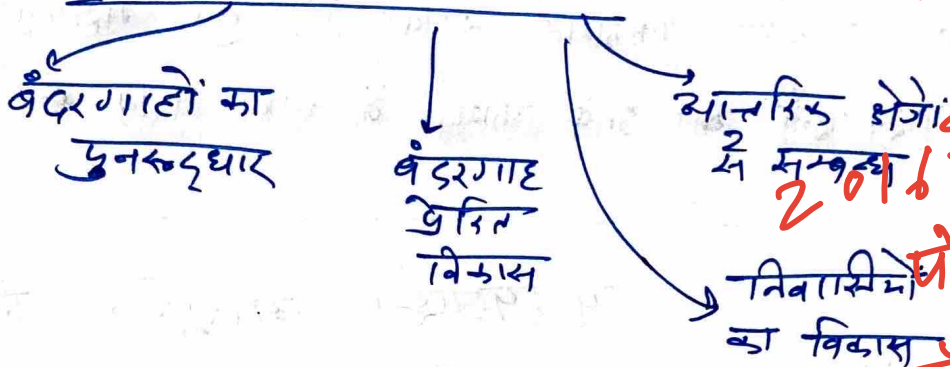 बंदरगाहों का
पुनरूद्धार
बंदरगाह
प्रेरित
विकास
आन्तरिक क्षेत्रों
से सम्बन्ध
2016
निवासियों
का विकास